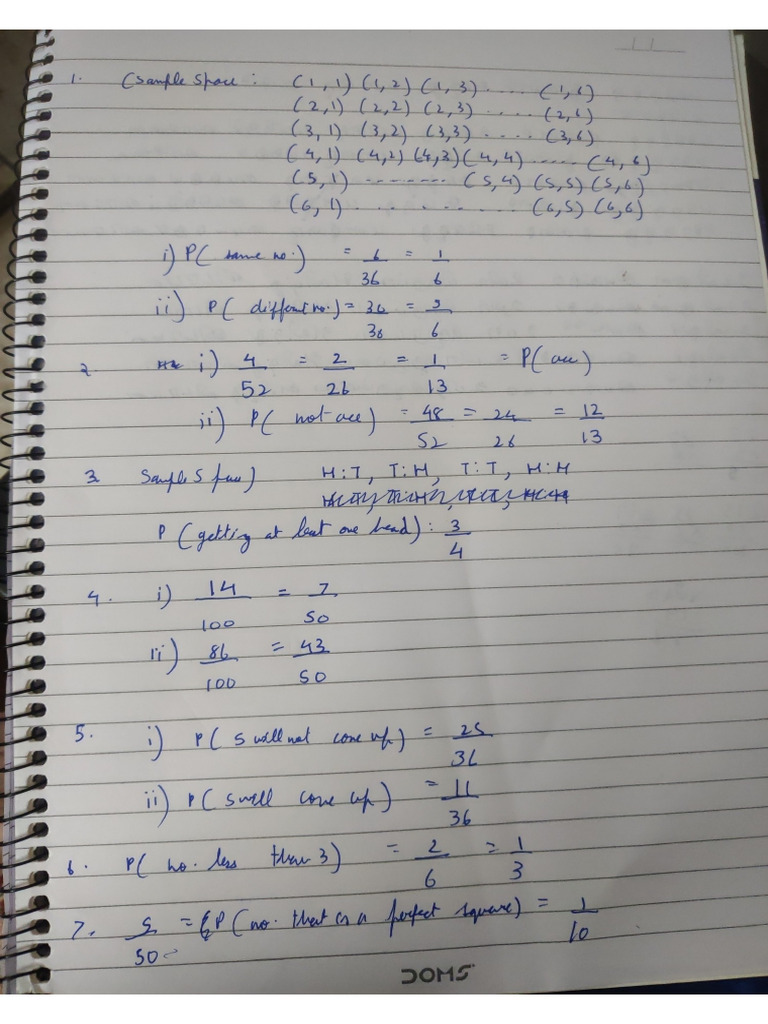 1. (Sample Space : (1,1) (1,2) (1,3) ..... (1,6)
(2,1) (2,2) (2,3) ..... (2,6)
(3,1) (3,2) (3,3) ..... (3,6)
(4,1) (4,2) (4,3) (4,4) ..... (4,6)
(5,1) ........ (5,4) (5,5) (5,6)
(6,1) .......... (6,5) (6,6)
i) P( same no.) = 6/36 = 1/6
ii) P( different no.) = 30/36 = 5/6
2. i) 4/52 = 2/26 = 1/13 = P( ace)
ii) P( not ace) = 48/52 = 24/26 = 12/13
3. Sample Space) H:T, T:H, T:T, H:H
P (getting at least one head) : 3/4
4. i) 14/100 = 7/50
ii) 86/100 = 43/50
5. i) P( 5 will not come up) = 25/36
ii) P( 5 will come up) = 11/36
6. P( no. less then 3) = 2/6 = 1/3
7. 5/50 = P( no. that is a perfect square) = 1/10
DOMS